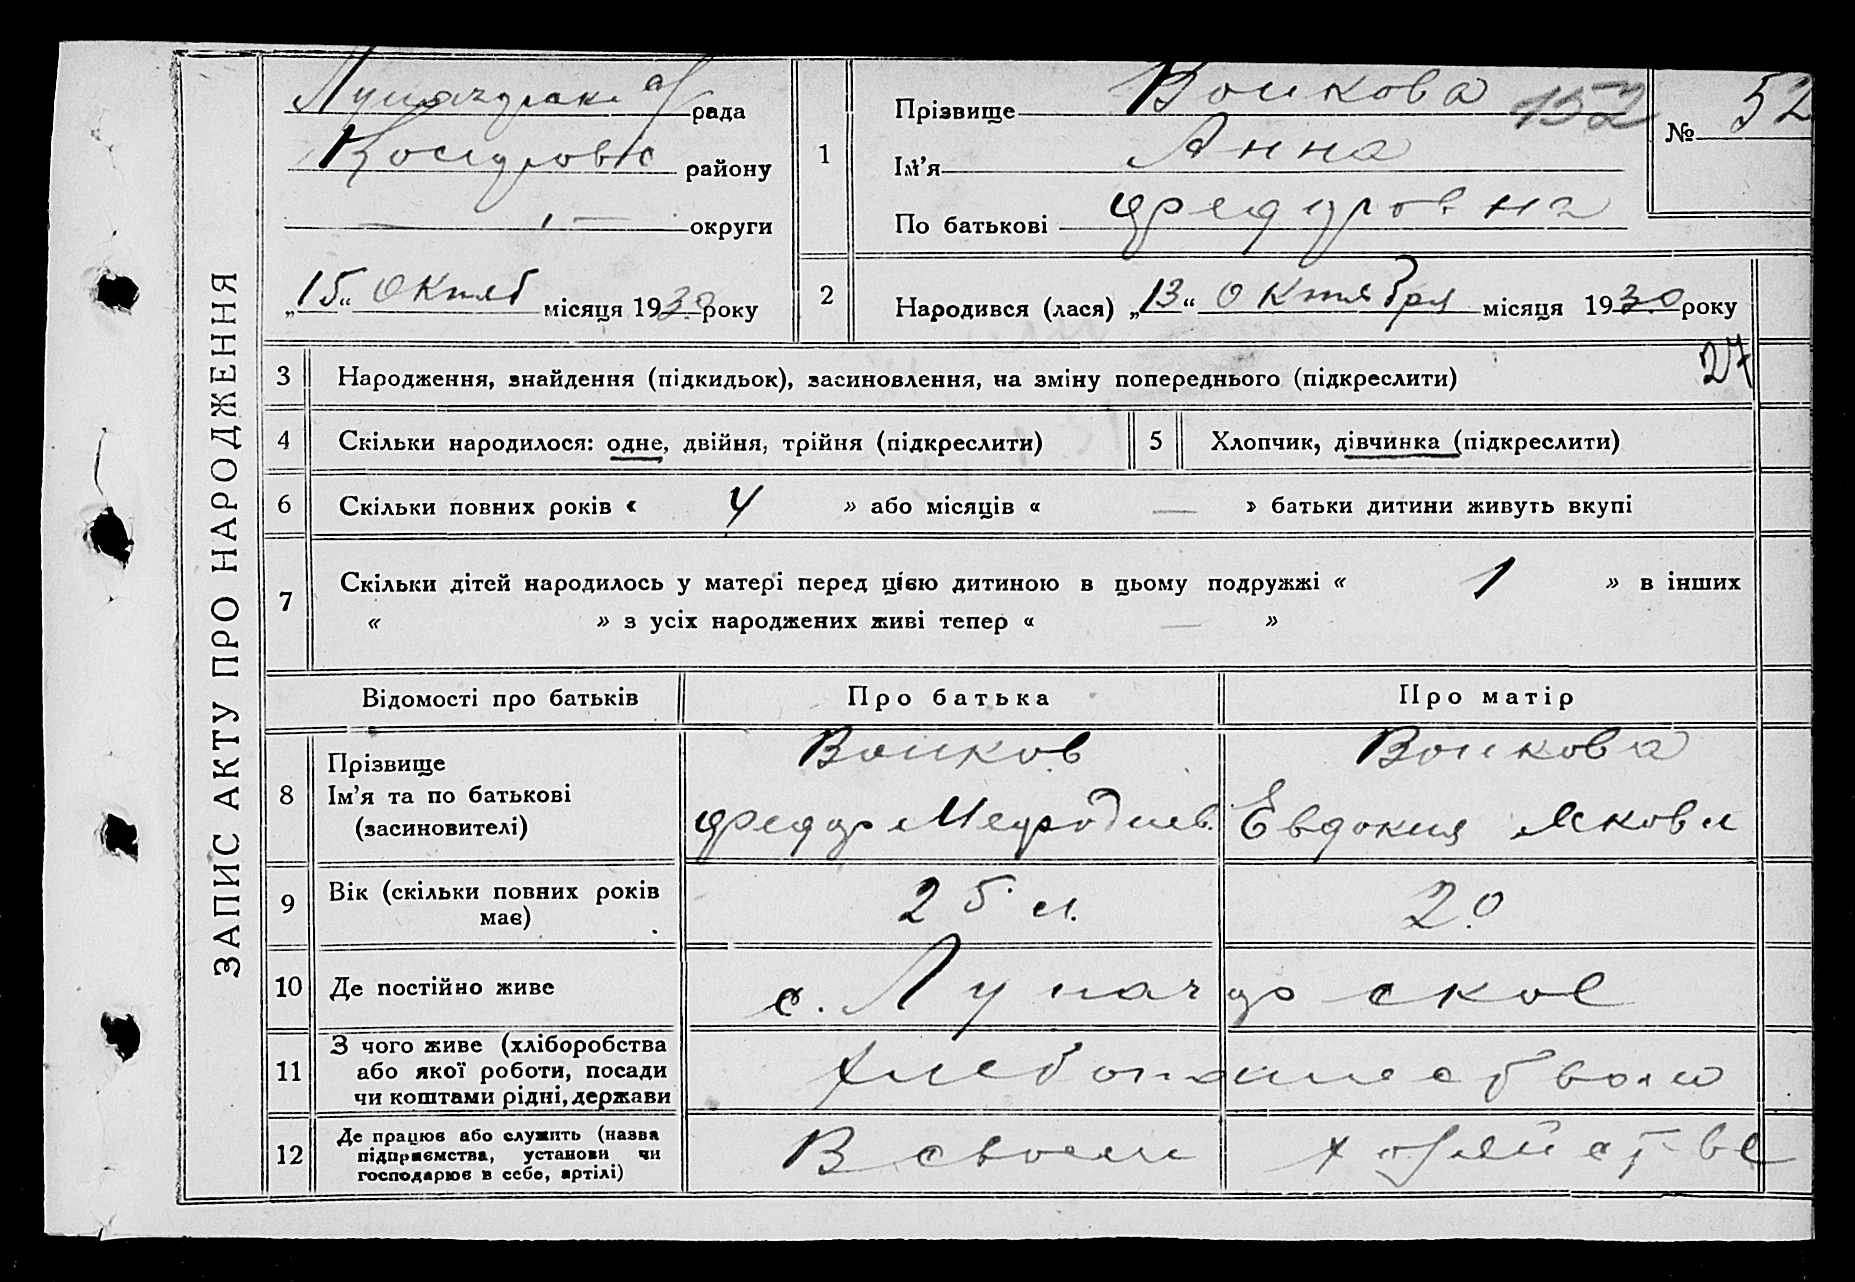 ЗАПИС АКТУ ПРО НАРОДЖЕННЯ
рада
району
округи
„15“ Октяб місяця 1930 року
1
Прізвище Воикова
152
Ім’я Анна
По батькові Федоровна
№ 52
2
Народився (лася) „13“ Октября місяця 1930 року
27
3 Народження, знайдення (підкидьок), засиновлення, на зміну попереднього (підкреслити)
4 Скільки народилося: одне, двійня, трійня (підкреслити)
5 Хлопчик, дівчинка (підкреслити)
6 Скільки повних років « 4 » або місяців « — » батьки дитини живуть вкупі
7 Скільки дітей народилось у матері перед цією дитиною в цьому подружжі « 1 » в інших
« » з усіх народжених живі тепер « — »
Відомості про батьків Про батька Про матір
8
Прізвище
Ім’я та по батькові
(засиновителі)
Воиков
Федор Мефодиев.
Воикова
Евдокия Яковл
9
Вік (скільки повних років
має)
25 л.
20
10 Де постійно живе
с. Лупачорское
11
З чого живе (хліборобства
або якої роботи, посади
чи коштами рідні, держави
Хлебопашеством
12
Де працює або служить (назва
підприємства, установи чи
господарює в себе, артілі)
В своем хозяйстве